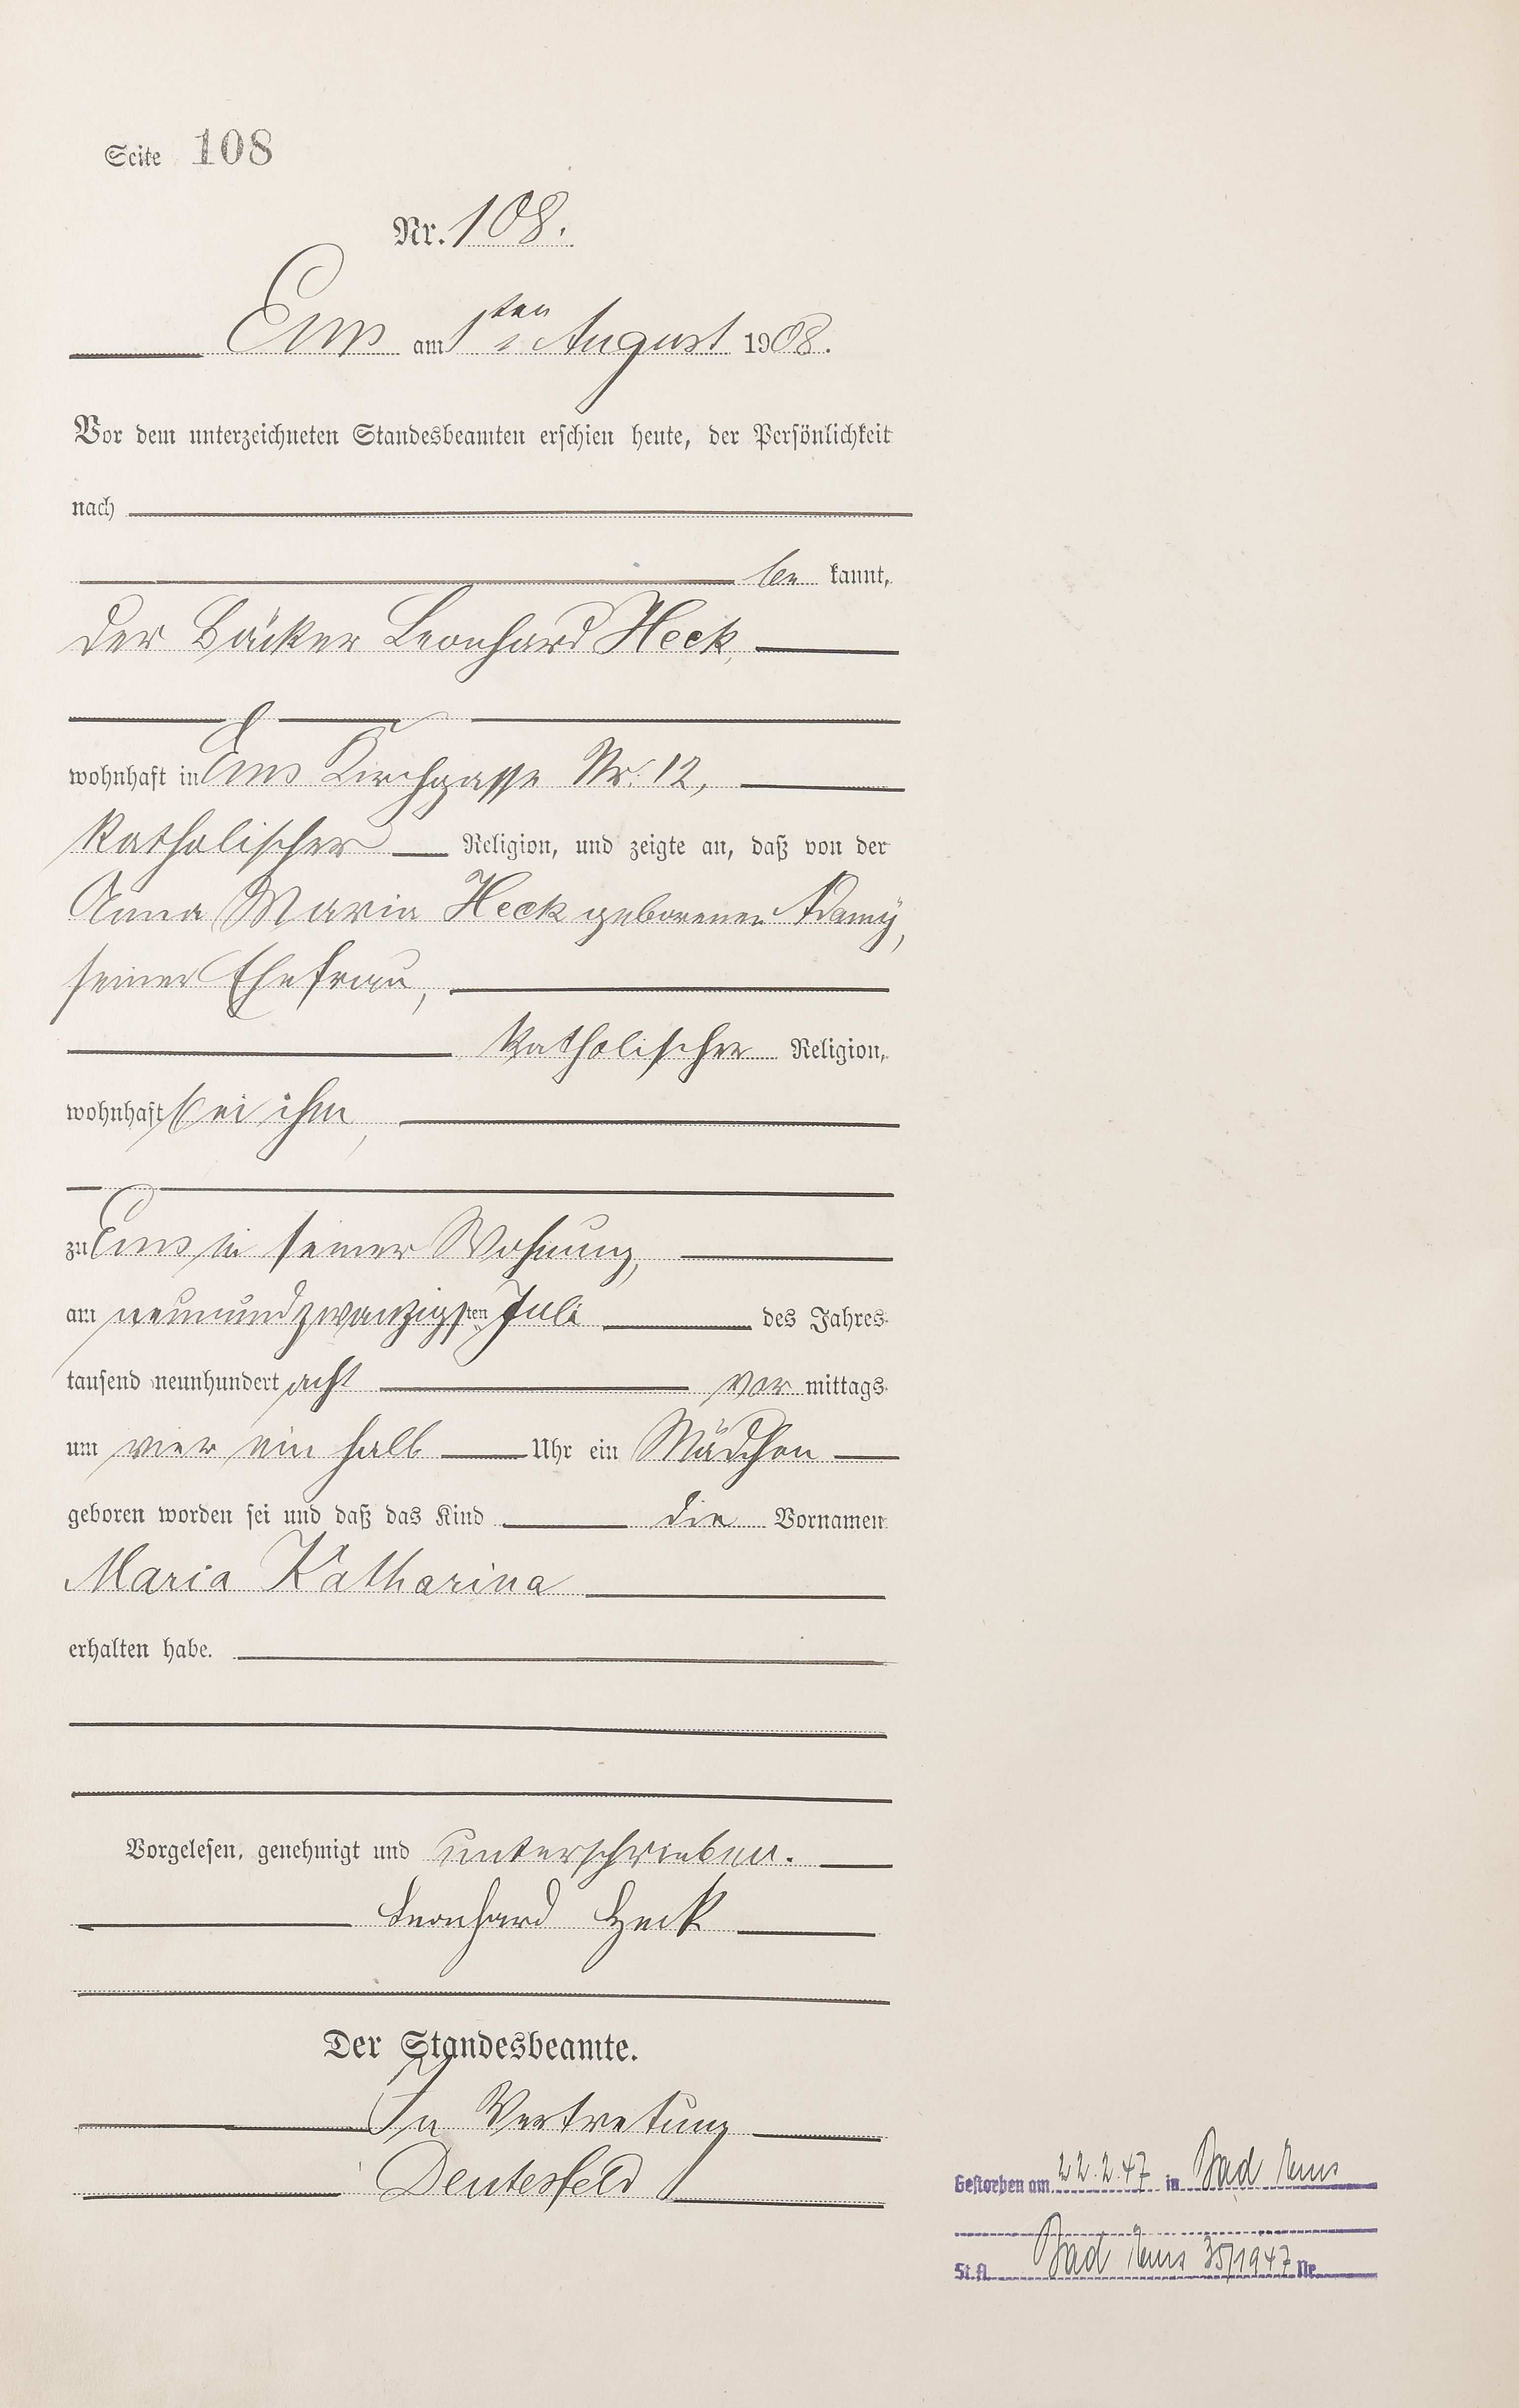 Seite 108
Nr. 108.
Ems am 1ten August 1908.
Vor dem unterzeichneten Standesbeamten erschien heute, der Persönlichkeit
nach
be kannt,
der Bäcker Leonhard Heck,
wohnhaft in Ems Kirchgasse Nr. 12,
katholischer Religion, und zeigte an, daß von der
Anna Maria Heck geborenen Adamÿ,
seiner Ehefrau,
katholischer Religion,
wohnhaft bei ihm,
zu Ems in seiner Wohnung,
am neunundzwanzigsten Juli des Jahres
tausend neunhundert acht vor mittags
um vier ein halb Uhr ein Mädchen
geboren worden sei und daß das Kind die Vornamen
Maria Katharina
erhalten habe.
Vorgelesen, genehmigt und unterschrieben.
Leonhard Heck
Der Standesbeamte.
In Vertretung
Deutesfeld
Gestorben am 22.2.47 in Bad Ems
St.A. Bad Ems 35/1947 Nr.